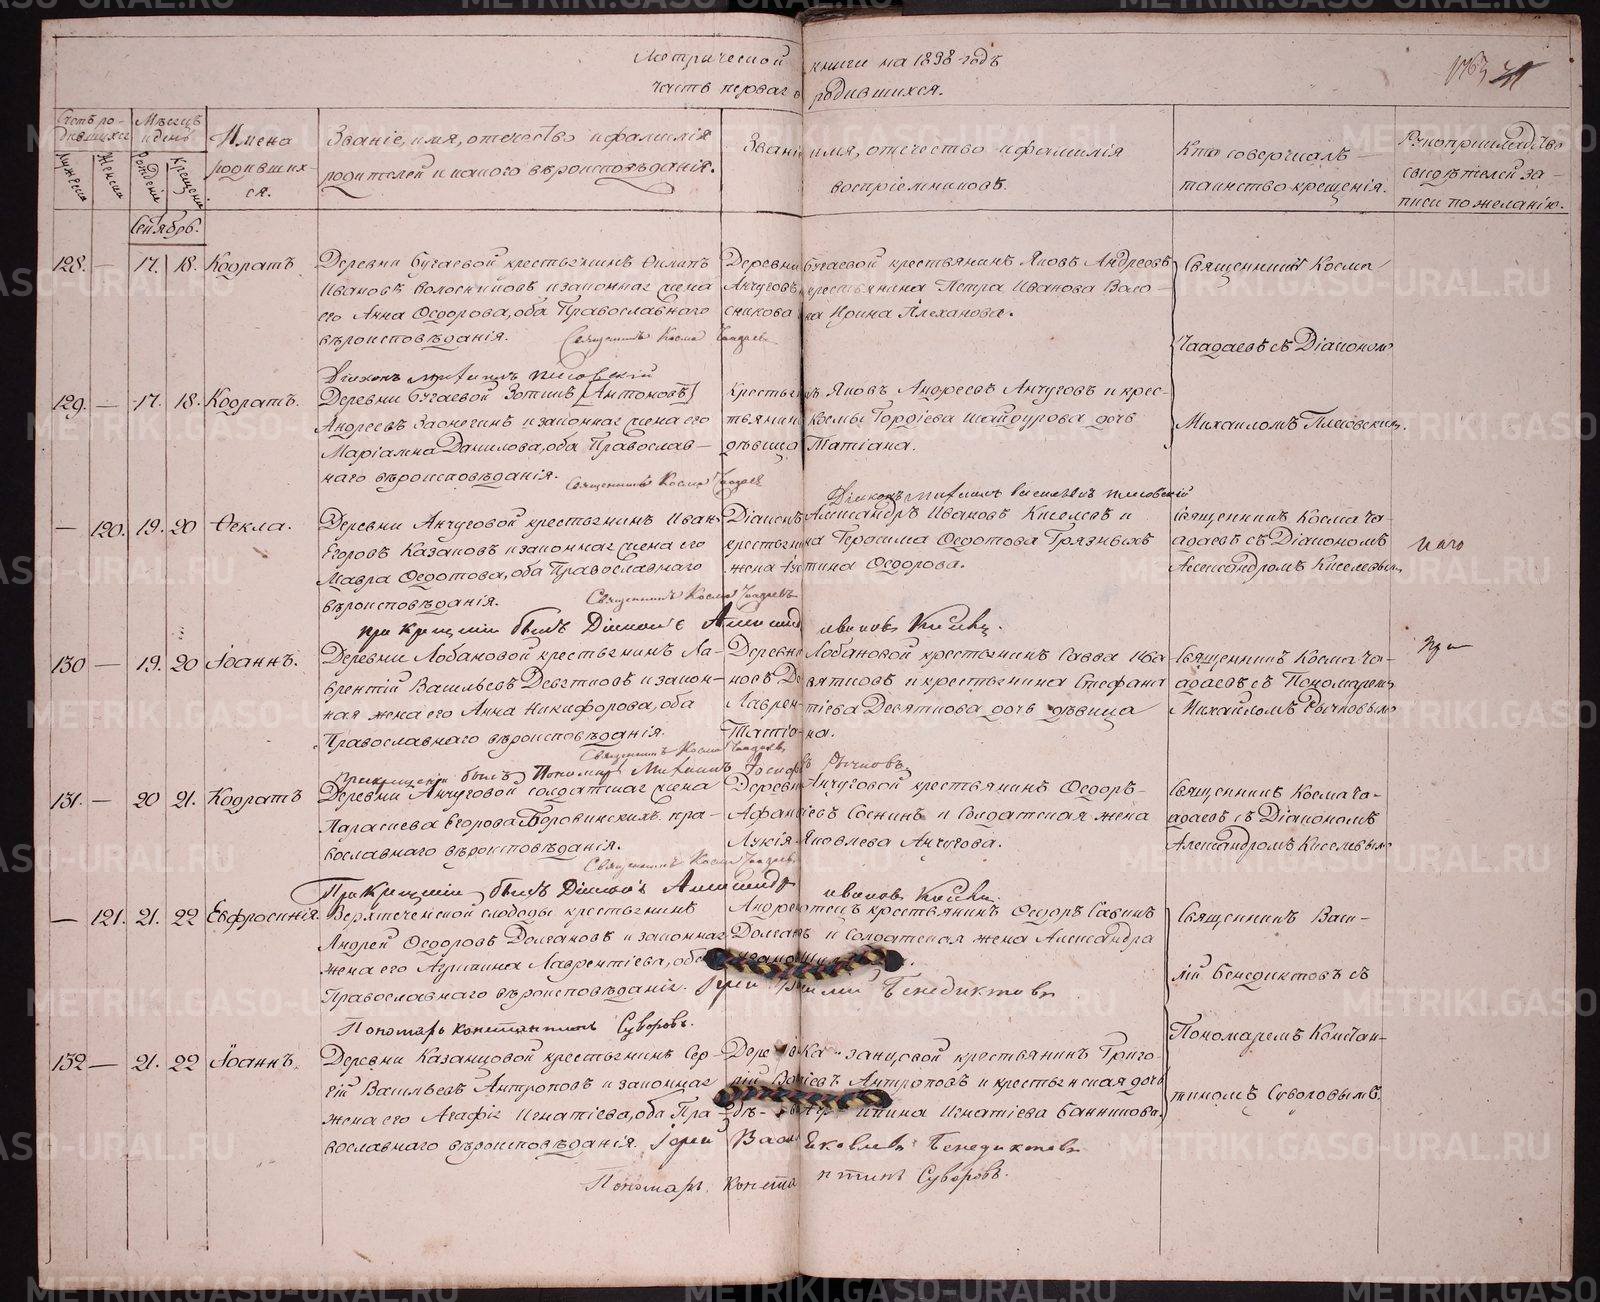 Метрической книги на 1898 годъ
часть первая о родившихся.
Счетъ ро-
дившихся
Мѣсяцъ
и день
Имена
родивших-
ся.
Званіе, имя, отечество и фамилія
родителей и какого вѣроисповѣданія.
Званіе, имя, отечество и фамилія
воспріемниковъ.
Кто совершалъ
таинство крещенія.
Рукоприкладство
свидѣтелей за-
писи по желанію.
Мужеска
Женска
Рожденія
Крещенія
Сентябрь.
128. — 17. 18. Кодратъ
Деревни Бугаевой крестьянинъ Филипъ
Ивановъ Волосниковъ и законная жена
его Анна Ѳедорова, оба Православнаго
вѣроисповѣданія.
Священникъ Косма Чаадаевъ
Деревни Бугаевой крестьянинъ Яковъ Андреевъ
Анчуговъ крестьянина Петра Иванова
Ирина Плеханова.
Священникъ Косма
Чаадаевъ съ Діакономъ
Михаиломъ Плесовскимъ.
Діаконъ
129. — 17. 18. Кодратъ.
Деревни Бугаевой Зотикъ (Антоновъ)
Андреевъ Заонегинъ и законная жена его
Маріамна Данилова, оба Православ-
наго вѣроисповѣданія.
Священникъ Косма Чаадаевъ
Яковъ Андреевъ Анчуговъ и крес-
тьянина Космы Гордіева Шайдурова дочь
дѣвица Татіана.
— 120. 19. 20 Ѳекла.
Деревни Анчуговой крестьянинъ Иванъ
Егоровъ Казаковъ и законная жена его
Мавра Ѳедотова, оба Православнаго
вѣроисповѣданія.
Священникъ Косма Чаадаевъ
Діаконъ Александръ Ивановъ Киселевъ и
крестьянина Герасима Ѳедотова Грязныхъ
жена Устина Ѳедорова.
Священникъ Косма Ча-
адаевъ съ Діакономъ
Александромъ Киселевымъ
при Крещеніи былъ Діаконъ Александръ Ивановъ Киселевъ.
130 — 19. 20 Іоаннъ.
Деревни Лобановой крестьянинъ Ла-
врентій Васильевъ Девятковъ и закон-
ная жена его Анна Никифорова, оба
Православнаго вѣроисповѣданія.
Священникъ Косма Чаадаевъ
Деревни Лобановой крестьянинъ Савва
Девятковъ и крестьянина Стефана
Лаврентіева Девяткова дочь дѣвица
Татіана.
Священникъ Косма Ча-
адаевъ съ Пономаремъ
Михайломъ Рычковымъ
При крещеніи былъ Пономарь Михаилъ Рычковъ
131. — 20 21. Кодратъ
Деревни Анчуговой солдатская жена
Параскева Егорова Боровинскихъ пра-
вославнаго вѣроисповѣданія.
Священникъ Косма Чаадаевъ
Деревни Анчуговой крестьянинъ Ѳедоръ
Афанасіевъ Соснинъ и Солдатская жена
Лукія Яковлева Анчугова.
Священникъ Косма Ча-
адаевъ съ Діакономъ
Александромъ Киселевымъ
При Крещеніи былъ Діаконъ Александръ Ивановъ Киселевъ
— 121. 21. 22 Евфросинія.
Верхтеченской слободы крестьянинъ
Андрей Ѳедоровъ Долгановъ и законная
жена его Агрипина Лаврентіева, оба
Православнаго вѣроисповѣданія. Іерей Василій Бенедиктовъ
Пономарь Константинъ Суворовъ.
крестьянинъ Ѳедоръ Савинъ
Долгановъ и Солдатская жена Александра
Священникъ Васи-
лій Бенедиктовъ съ
Пономаремъ Констан-
тиномъ Суворовымъ.
132 — 21. 22 Іоаннъ.
Деревни Казанцовой крестьянинъ Сер-
гій Васильевъ Антроповъ и законная
жена его Агафія Игнатіева, оба Пра-
вославнаго вѣроисповѣданія. Іерей Василій Яковлевъ Бенедиктовъ
Деревни Казанцовой крестьянинъ Григо-
рій Антроповъ и крестьянская дочь
Игнатіева Банникова.
Пономарь Константинъ Суворовъ.
METRIKI.GASO-URAL.RU